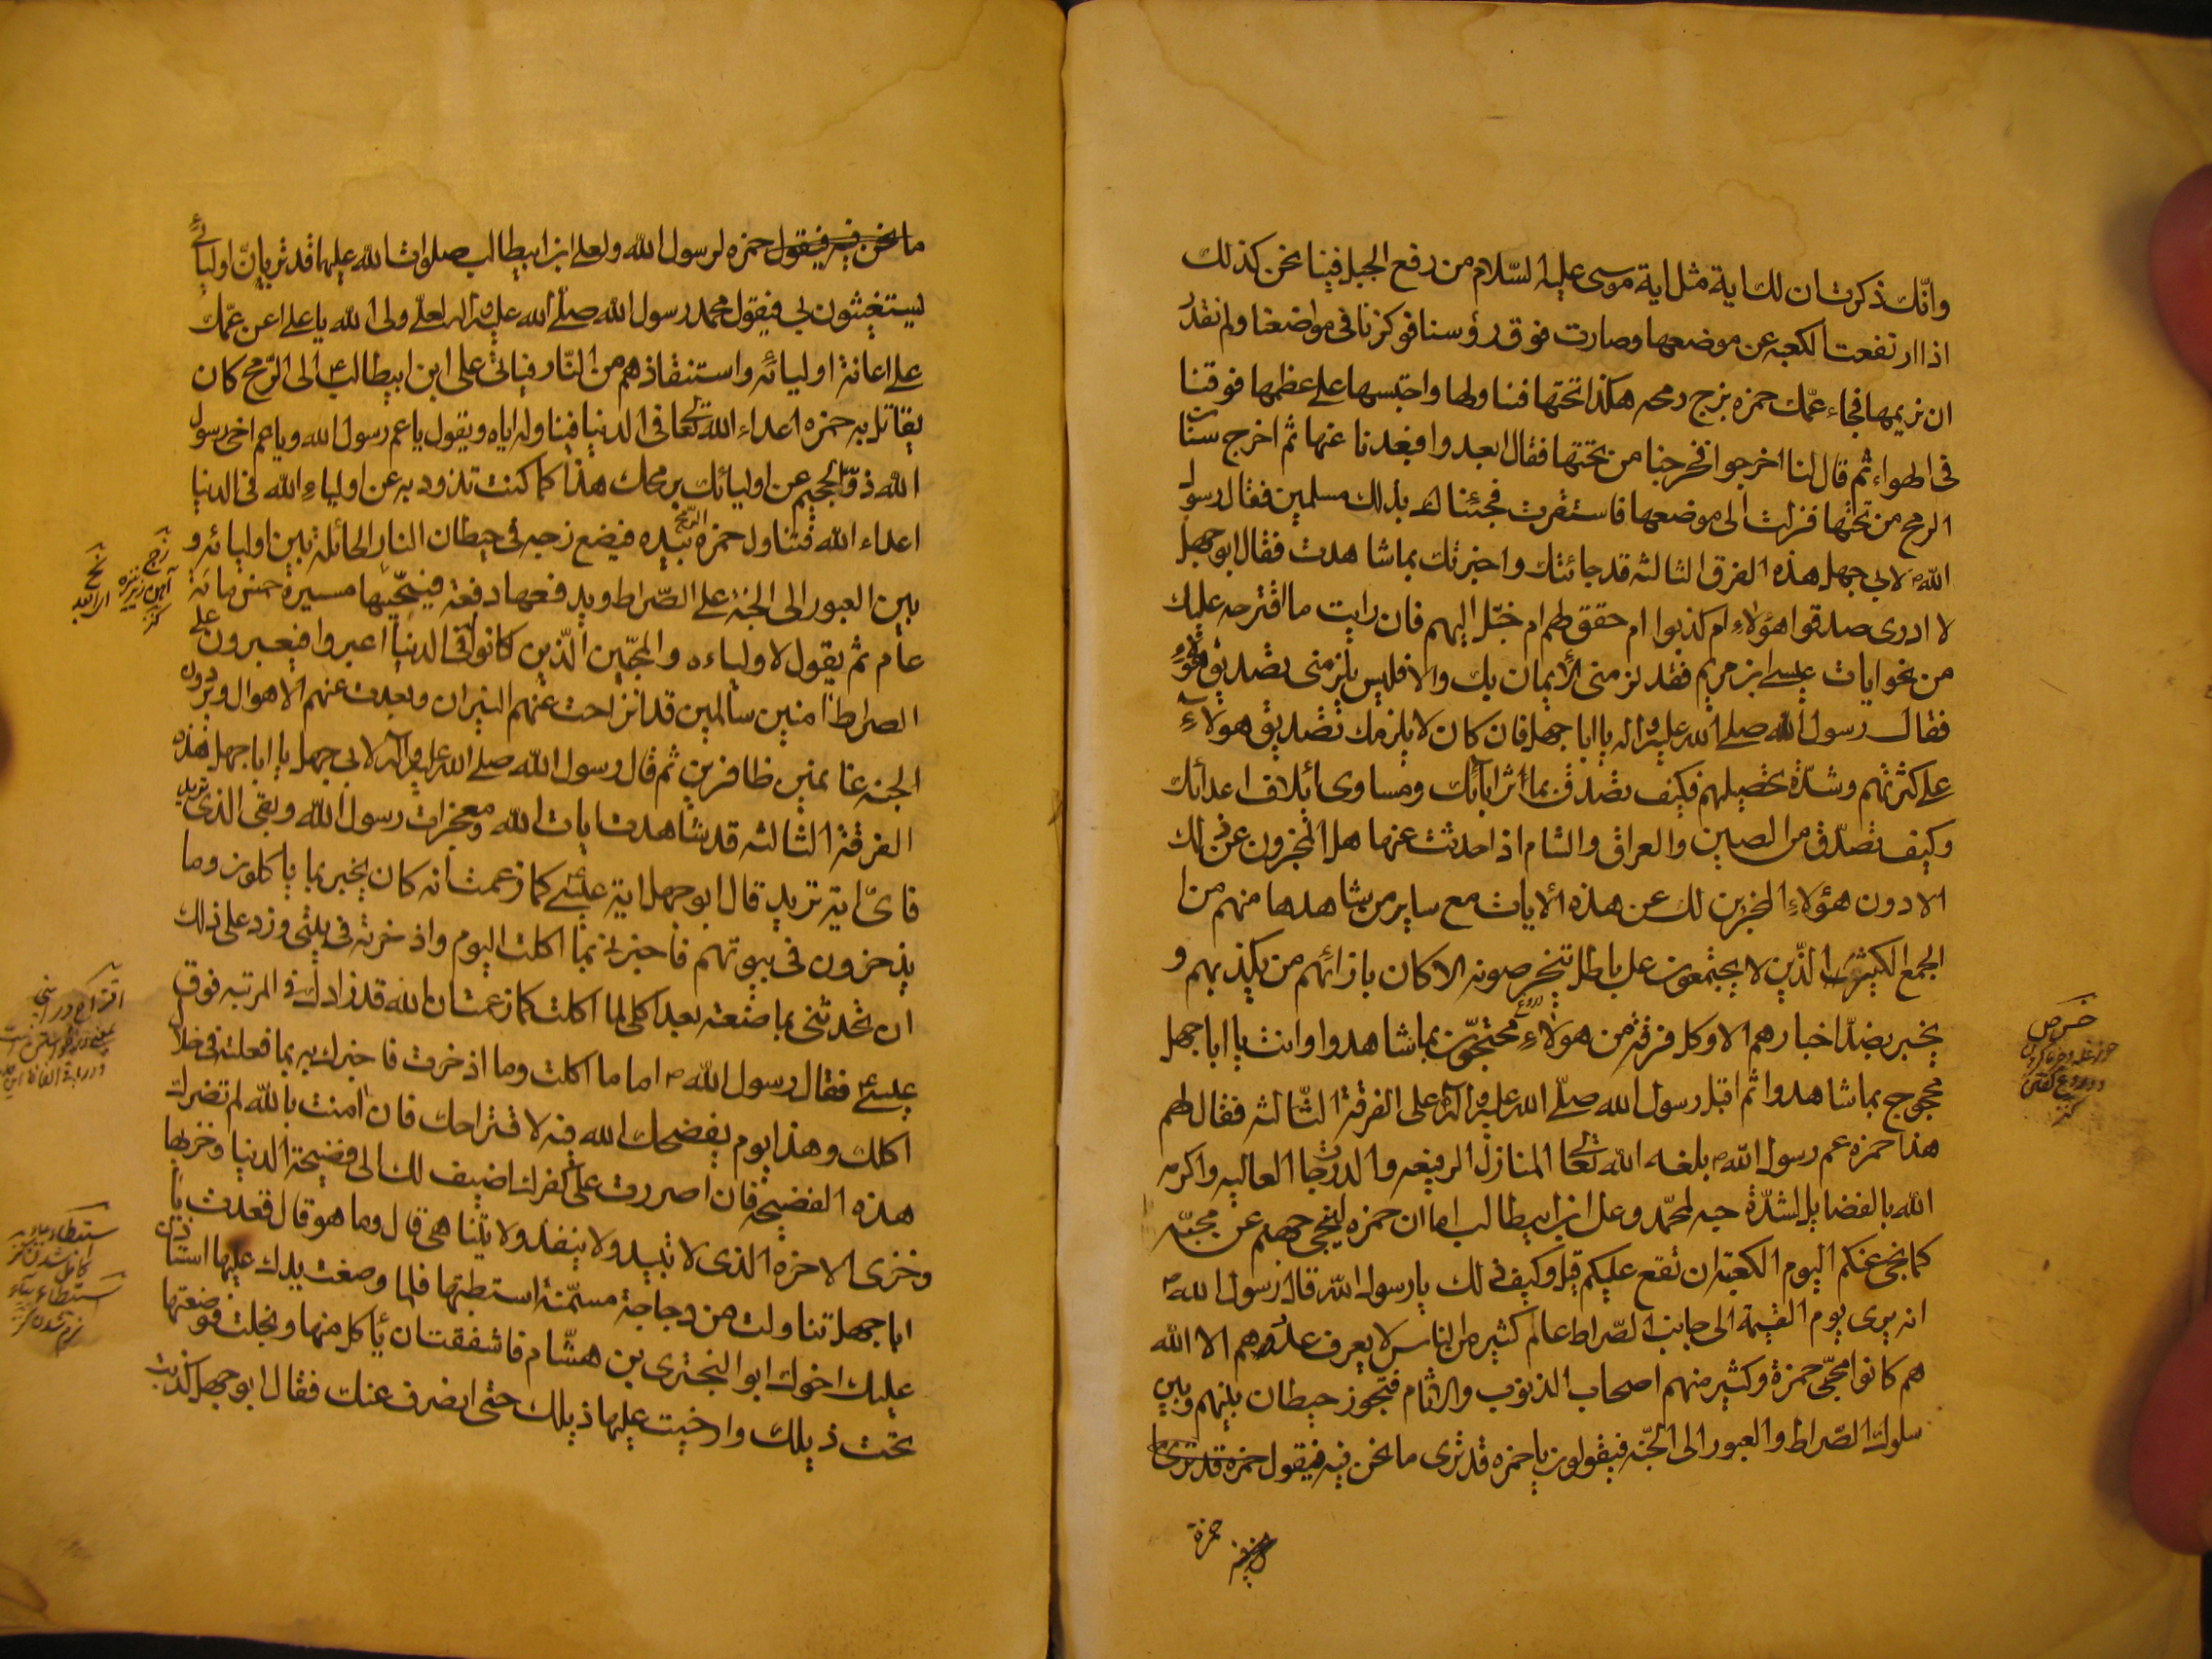 وانّك ذكرت ان لك اية مثل اية موسى عليه السّلام من رفع الجبل فينا نحن كذلك
اذا ارتفعت الكعبه عن موضعها وصارت فوق رؤسنا فوكزنا فى مواضعنا ولم نقدر
ان نزيمها فجاء عمّك حمزه بزج رمحه هكذا تحتها فتناولها واحتبسها على عظمها فوقنا
فى الهواء ثم قال لنا اخرجوا فخرجنا من تحتها فقال ابعدوا فبعدنا عنها ثم اخرج سنان
الرمح من تحتها فنزلت الى موضعها فاستقرت فجئناك بذلك مسلمين فقال رسول
الله ص لابى جهل هذه الفرق الثالثه قد جائتك واخبرتك بما شاهدت فقال ابو جهل
لا ادرى صدقوا هؤلاء ام كذبوا ام حقق لهم ام خيّل اليهم فان رايت ما اقترحه عليك
من نحو ايات عيسى ابن مريم فقد لزمنى الايمان بك والا فليس يلزمنى تصديق هؤلاء
فقال رسول الله صلى الله عليه واله يا ابا جهل فان كان لا يلزمك تصديق هولاء
على كثرتهم وشدّة تحصيلهم فكيف تصدق بما اثر ابائك ومساوى اسلاف اعدائك
وكيف تصدّق من الصين والعراق والشام اذا حدثت عنها هل المخبرون عن ذلك
الا دون هؤلاء المخبرين لك عن هذه الايات مع ساير من شاهدها منهم من
الجمع الكثيف الذّين لا يجتمعون على باطل يتخرصونه الا كان بازائهم من يكذبهم و
يخبر بضدّ اخبارهم الا وكل فرقة من هولاء محتجّون بما شاهدوا وانت يا ابا جهل
محجوج بما شاهدوا ثم اقبل رسول الله صلّى الله عليه واله على الفرقة الثّالثه فقال لهم
هذا حمزه عم رسول الله ص بلغه الله تعالى المنازل الرفيعه والدرجات العاليه واكرمه
الله بالفضايل لشدّة حبه لمحمّد وعلى ابن ابيطالب اما ان حمزه لينحّى جهنم عن محبّيه
كما نحى عنكم اليوم الكعبة ان تقع عليكم قيل وكيف ذلك يا رسول الله قال رسول الله ص
انه يرى يوم القيمة الى جانب الصّراط عالم كثير من الناس لا يعرف عددهم الا الله
هم كانوا محبّى حمزة وكثير منهم اصحاب الذنوب والاثام فتحوز حيطان بينهم وبين
سلوك الصّراط والعبور الى الجنّه فيقولون يا حمزه قد ترى ما نحن فيه فيقول حمزه قد ترى
حمزة
خرص
ما نحن فيه فيقول حمزه لرسول الله ولعلى ابن ابيطالب صلوات الله عليهما قد تريان اوليائى
يستغيثون بى فيقول محمد رسول الله صلى الله عليه واله لعلّى ولى الله يا على اعن عمّك
على اعانة اوليائه واستنقاذهم من النّار فياتى على ابن ابيطالب ع الى الرّمح كان
يقاتل به حمزه اعداء الله تعالى فى الدنيا فيناوله اياه ويقول يا عم رسول الله ويا عم اخى رسول
الله ذوّد الجحيم عن اوليائك برمحك هذا كما كنت تذود به عن اولياء الله فى الدنيا
اعداء الله فتناول حمزه الرمح بيده فيضع زجه فى حيطان النار الحائلة بين اوليائه و
بين العبور الى الجنة على الصّراط ويدفعها دفعة فينحّيها مسيرة خمسمائة
عام ثم يقول لاولياءه والمحبّين الذّين كانوا له فى الدنيا اعبروا فيعبرون على
الصراط امنين سالمين قد انزاحت عنهم النيران وبعدت عنهم الاهوال ويردون
الجنه غانمين ظافرين ثم قال رسول الله صلى الله عليه واله لابى جهل يا ابا جهل هذه
الفرقة الثالثه قد شاهدت ايات الله ومعجزات رسول الله وبقى الذى تريد
فاىّ اية تريد قال ابو جهل اية عيسى كما زعمت انه كان يخبر بما ياكلون وما
يدخرون فى بيوتهم فاخبرنى بما اكلت اليوم واذخرته فى بيتى وزد على ذلك
ان تحدثنى بما صنعته بعد اكلى لما اكلت كما زعمت ان الله قد زادك فى المرتبه فوق
عيسى فقال رسول الله ص اما ما اكلت وما اذخرت فاخبرك به بما فعلته فى خلال
اكلك وهذا يوم يفضحك الله فيه لاقتراحك فان امنت بالله لم تضرك
هذه الفضيحة فان اصررت على كفرك اضيف لك الى فضيحة الدنيا وخزيها
وخزى الاخره الذى لا تبيد ولا ينفد ولا يتناهى قال وما هو قال قعدت يا
ابا جهل تناولت من دجاجة مسمّنة استطبتها فلما وضعت يدك عليها استاذن
عليك اخوك ابو البخترى بن هشّام فاشفقت ان ياكل منها وبخلت فوضعتها
تحت ذيلك وارخيت عليها ذيلك حتى انصرف عنك فقال ابو جهل كذبت
زج